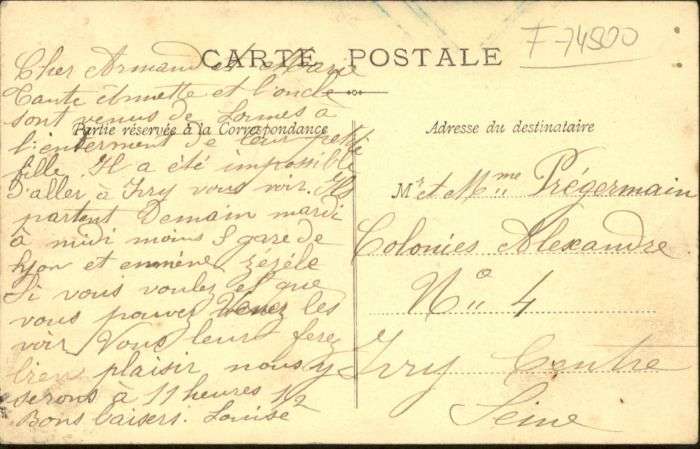 F-74800
CARTE POSTALE
Cher Armand et Marie
Tante Annette et l'oncle
sont venus de Lormes à
Partie réservée à la Correspondance
l'enterment de leur petite
fille. Il a été impossible
d'aller à Ivry vous voir. Ils
partent Demain mardi
à midi moins 5 gare de
Lyon et emmène
Si vous voulez et que
vous pouvez Venez les
voir Vous leur ferez
bien plaisir nous y
serons à 11 heures 1/2
Bons baisers. Louise
Adresse du destinataire
Mr et Mme Prégermain
Colonies Alexandre
No 4
Ivry Centre
Seine